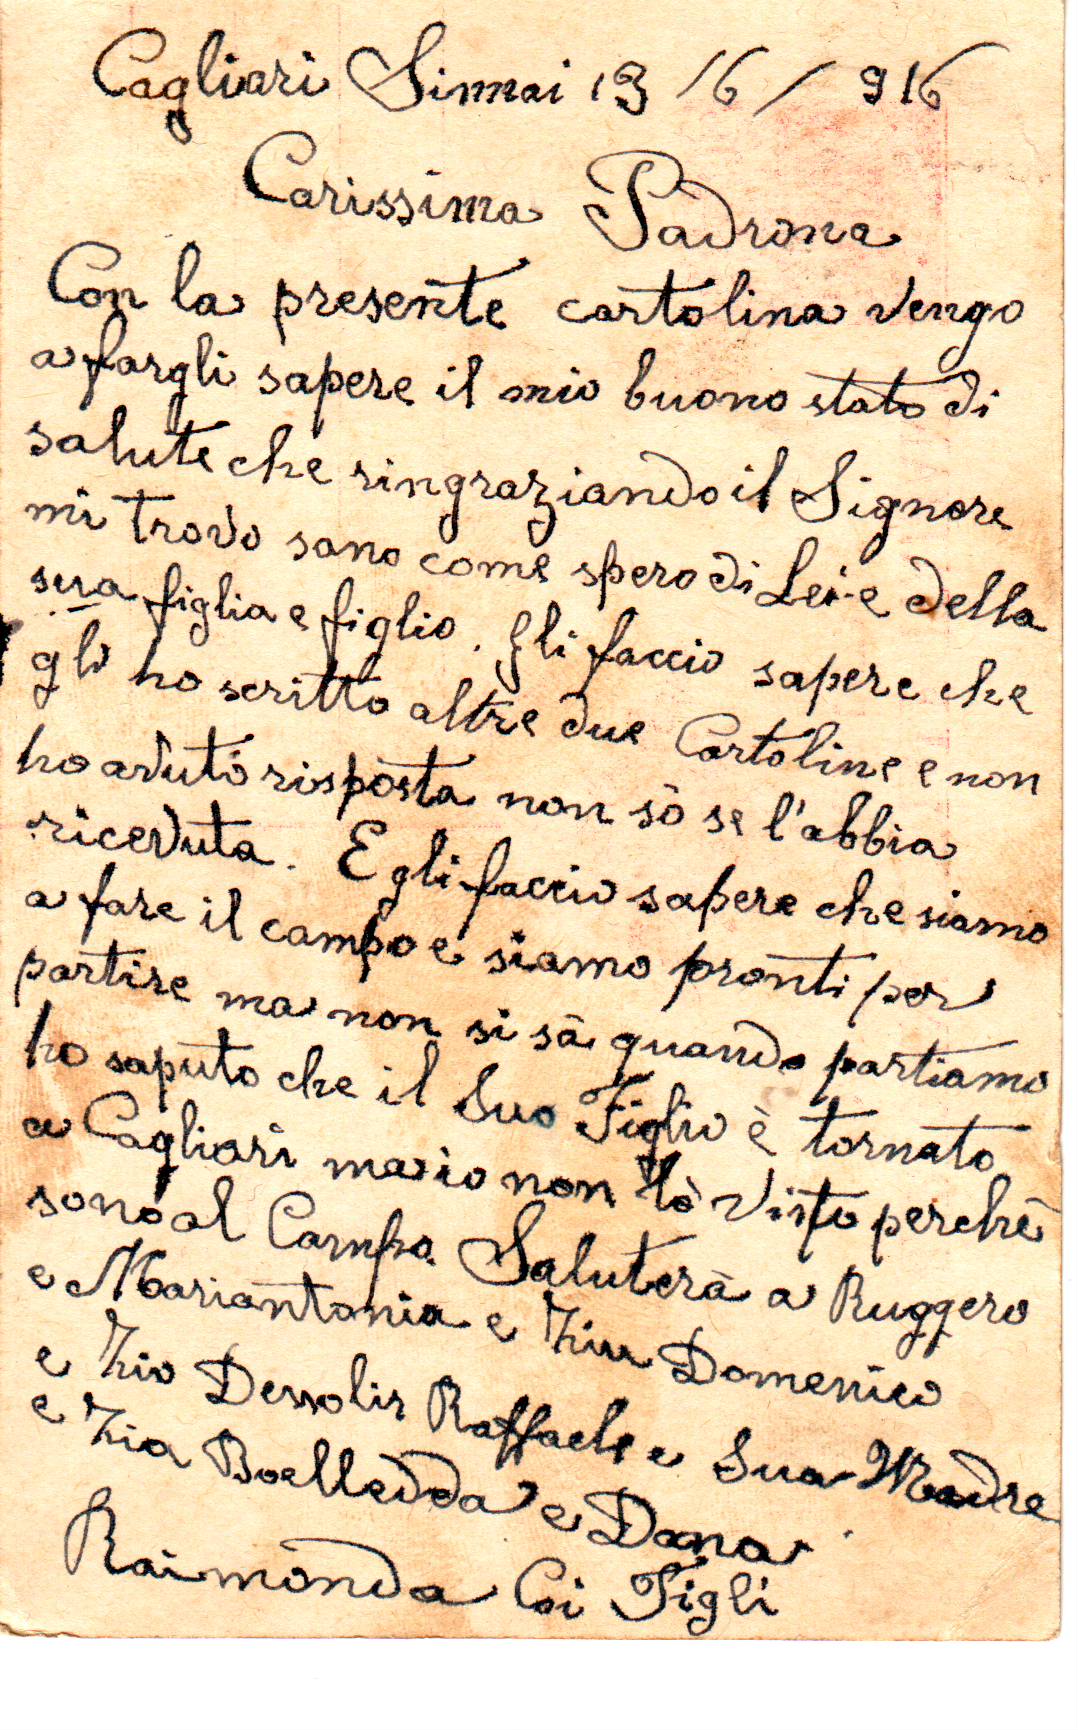 Cagliari Sinnai 13/6/916
Carissima Padrona
Con la presente cartolina vengo
a fargli sapere il mio buono stato di
salute che ringraziando il Signore
mi trovo sano come spero di Lei e della
sua figlia e figlio. Gli faccio sapere che
gli ho scritto altre due Cartoline e non
ho avuto risposta non sò se l'abbia
riceVuta. E gli faccio sapere che siamo
a fare il campo e siamo pronti per
partire ma non si sà quando partiamo
ho saputo che il Suo Figlio è tornato
a Cagliari ma io non lò Visto perchè
sono al Campo Saluterà a Ruggero
e Mariantonia e Ziu Domenico
e Zio Dessolis Raffaele e Sua Madre
e Zia Boelledda e Dona
Raimonda Coi Figli